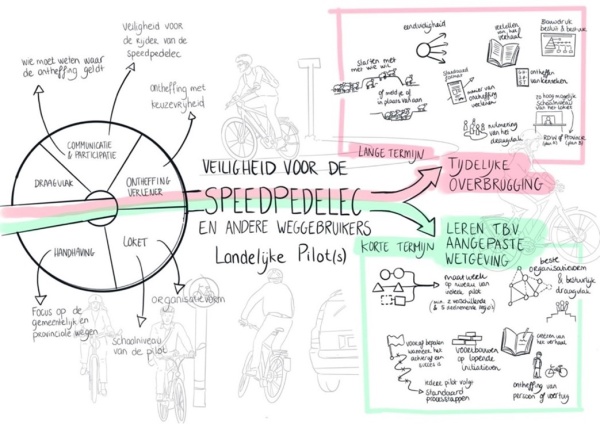 Veiligheid voor
de rijder van de
speedpedelec
wie moet weten waar
de ontheffing geldt
ontheffing met
keuzevrijheid
COMMUNICATIE
& PARTICIPATIE
DRAAGVLAK
ONTHEFFING
VERLENER
HANDHAVING
LOKET
Focus op de
gemeentelijk en
provinciale wegen
Schaalniveau
van de pilot
organisatievorm
VEILIGHEID VOOR DE
SPEEDPEDELEC
EN ANDERE WEGGEBRUIKERS
Landelijke Pilot(s)
eenduidigheid
vertellen
van het
verhaal
Bouwdruk
besluit & bestuur
starten met
met wie wil
of meld je
in plaats van aan
Standaard
format
manier van
ontheffing
verlenen
ontheffen
van kenteken
nulmeting
van het
draagvlak
zo hoog mogelijk
Schaalniveau
van het loket
RDW of Provincie
(plan A)
(plan B)
LANGE TERMIJN
TIJDELIJKE
OVERBRUGGING
KORTE TERMIJN
LEREN TBV
AANGEPASTE
WETGEVING
maatwerk
op niveau van
iedere pilot
beste
organisatievorm
& bestuurlijk
draagvlak
vooraf bepalen
wanneer het
succes is
voortbouwen
op lopende
initiatieven
creëren van
het verhaal
iedere pilot volgt
standaard
processtappen
ontheffing van
persoon of voertuig